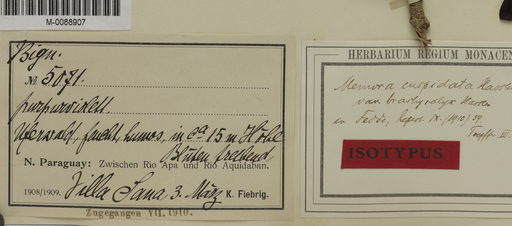 M-0088907
Bign.
№ 5071.
purpurviolett.
Uferwald, feucht, humos, in ca 15 m Höhe
Blüten
N. Paraguay: Zwischen Rio Apa und Rio Aquidaban.
1908/1909. Villa Sana 3. März K. Fiebrig.
Zugegangen VII. 1910.
HERBARIUM REGIUM MONACEN
Memora cuspidata Hassler
var. brachycalyx Hassler
in Fedde, Repert. IX. (1910)
ISOTYPUS